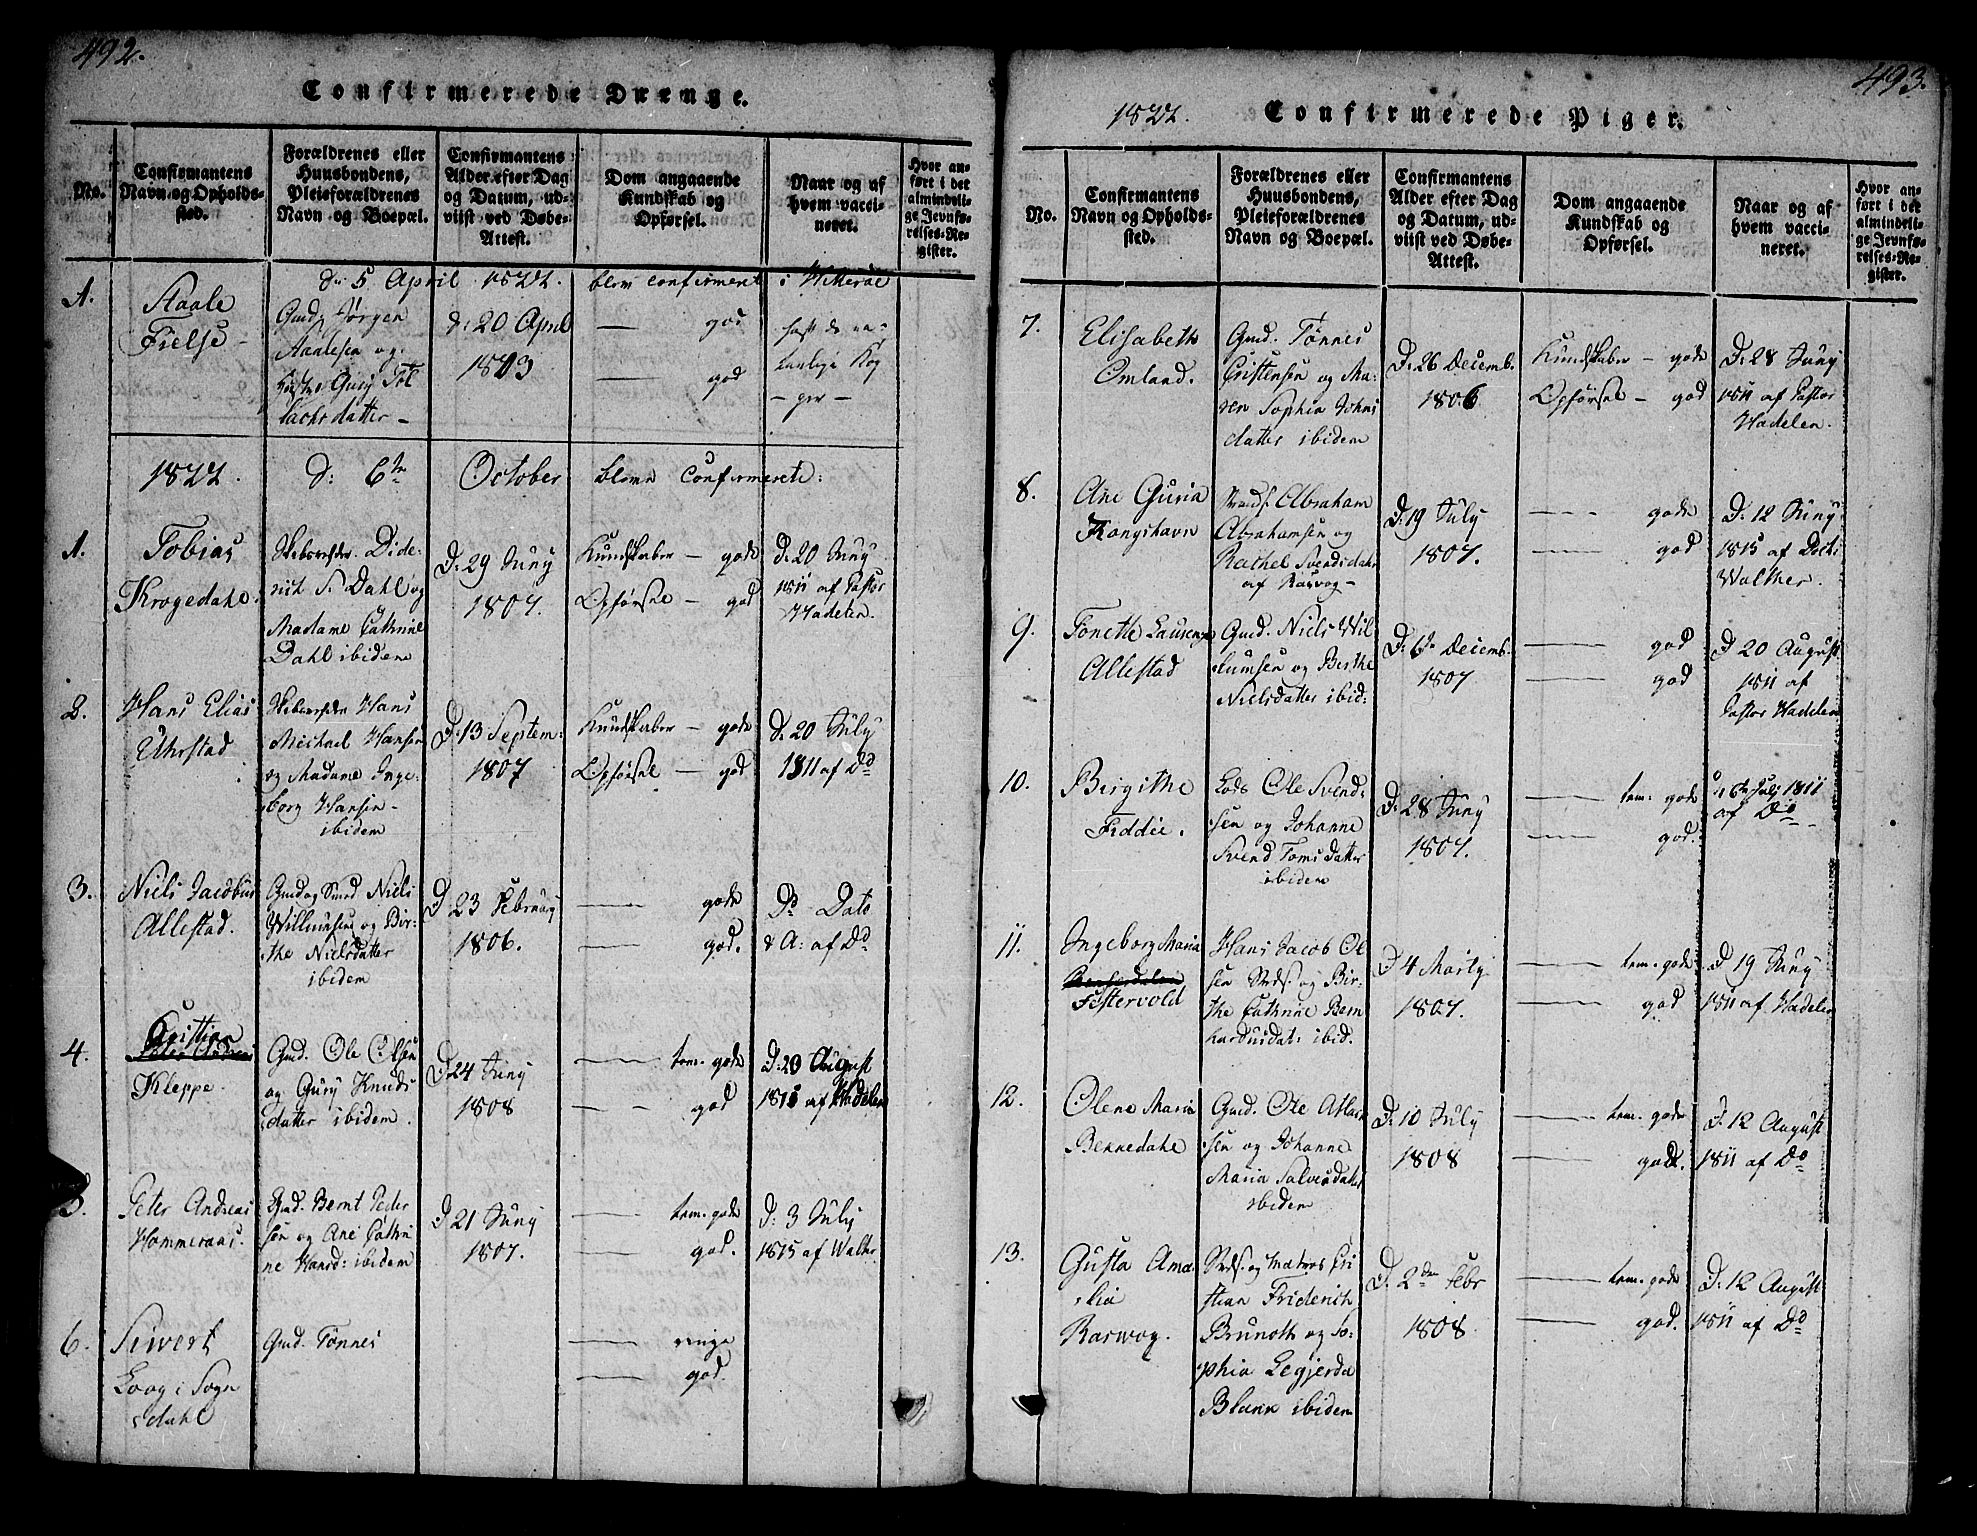 492.
Confirmerede Drænge.
No.
Confirmantens
Navn og Opholds-
sted.
Forældrenes eller
Huusbondens,
Pleieforældrenes
Navn og Boepæl.
Confirmantens
Alder efter Dag
og Datum, ud-
viist ved Døbe-
Attest.
Dom angaaende
Kundskab og
Opførsel.
Naar og af
hvem vacci-
neret.
Hvor an-
ført i det
almindeli-
ge Jevnfø-
relses-Re-
gister.
d: 5 April 1822. blev confirmeret i Hitterøe
1.
Staale
Fielse
Gmd. Jørgen
Staalesen og
Hustrue Gury Tol
lachsdatter
d: 20 April
1803
god
god
havt de na-
turlige Kop
per
1822. d: 6te October bleve Confirmerete:
1.
Tobias
Krogedahl.
Skibsreder Dide-
rich S. Dahl og
Madame Cathrine
Dahl ibidem
D: 29 Juny
1807.
Kundskaber — gode
Opførsel — god
D: 20 Juny
1811 af Pastor
Hadelen.
2.
Hans Elias
Uhrstad
Skibsreder Hans
Michael Hansen
og Madame Inge-
borg Hansen
ibidem
D: 13 Septem:
1807
Kundskaber — gode
Opførsel — god
D: 20 July
1811 af Do
3.
Niels Jacobus
Allestad.
Gmd og Smed Niels
Willumsen og Bir-
the Nielsdatter
ibidem
D 23 Februay
1806.
gode
god.
Do Dato
& A: af Do
4.
Cristian
Peter Andreas
Kleppe.
Gmd. Ole Olsen
og Gury Knuds
datter ibidem.
D: 24 Juny
1808
tem. gode
god
D: 20 August
1811 af Hadelen
5.
Peter Andreas
Hommeraas.
Gmd. Bernt Peder
sen og Ane Cathri
ne Hansd: ibidem
D 21 Juny
1807.
tem. gode
god.
D: 3 July
1815 af Walter
6.
Siwert
Loog i Sogn
dahl
Gmd. Tønnes
ringe
god.
493.
1822. Confirmerede Piger.
No.
Confirmantens
Navn og Opholds-
sted.
Forældrenes eller
Huusbondens,
Pleieforældrenes
Navn og Boepæl.
Confirmantens
Alder efter Dag
og Datum, ud-
viist ved Døbe-
Attest.
Dom angaaende
Kundskab og
Opførsel.
Naar og af
hvem vacci-
neret.
Hvor an-
ført i det
almindeli-
ge Jevnfø-
relses-Re-
gister.
7.
Elisabeth
Omland.
Gmd. Tønnes
Cristensen og Ma-
ren Sophia Johns
datter ibidem
D: 26 Decemb.
1806
Kundskaber — gode
Opførsel — god
D: 28 Juny
1811 af Pastor
Hadelen.
8.
Ane Guria
Kongshavn
Abraham
Abrahamsen og
Rachel Svendsdatr
af Rasvog
D: 19 July
1807.
gode
god
D: 12 Juny
1815 af Doct:
Walther.
9.
Tonette
Allestad
Gmd. Niels Wil
lumsen og Birthe
Nielsdatter ibid:
Decemb.
1807
god
god
D 20 August
1811 af
Pastor Hadelen
10.
Birgithe
Fiddie.
Lods Ole Svend-
sen og Johanne
Svend Toms datter
ibidem
D: 28 Juny
1807.
tem: gode
god.
July 1811
af Do
11.
Ingeborg Maria
Festervold
Hans Jacob Ol
sen og Bir-
the Cathrine Bern
hardusdat: ibid.
D 4 Marty
1807.
tem. gode
god
D 19 Juny
1811 af Hadelen
12.
Olene Maria
Bennedahl
Gmd. Ole Atlac
sen og Johanne
Maria Salvesdatter
ibidem
D: 10 July
1808
tem. gode
god.
D. 12 August
1811 af Do
13.
Gusta Ama-
lia
Raswog.
og Matros Cri
stian Friderich
Brunoth og So-
phia Legjerda
Blank ibidem
D. 2den Febr
1808.
tem. gode
god.
D: 12 August
1811 af Do